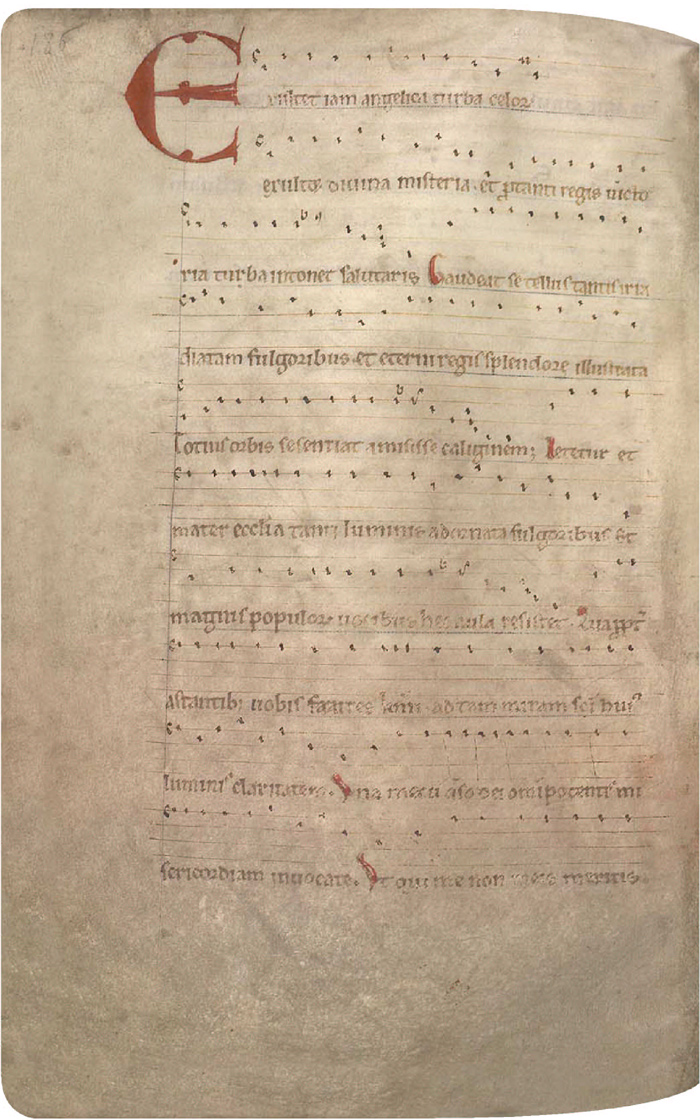 Exultet iam angelica turba celoꝝ
exultēt diuina misteria. et ꝓ tanti regis uicto
ria turba intonet salutaris Gaudeat se tellus tantis irra
diatam fulgoribus. et eterni regis splendore illustrata
totius orbis se sentiat amisisse caliginem; letetur et
mater ecclīa tanti luminis adornata fulgoribus Et
magnis populoꝝ uocibus hec aula resultet. Quapp̄t
astantibꝫ uobis fratres ad tam miram sc̄i huiꝰ
luminis claritatem. Una mecū q̄so dei omīpotentis mi
sericordiam inuocate. Ut qui me non meis meritis